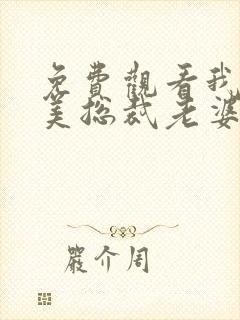 免費觀看我
美總裁老婆
嚴介周